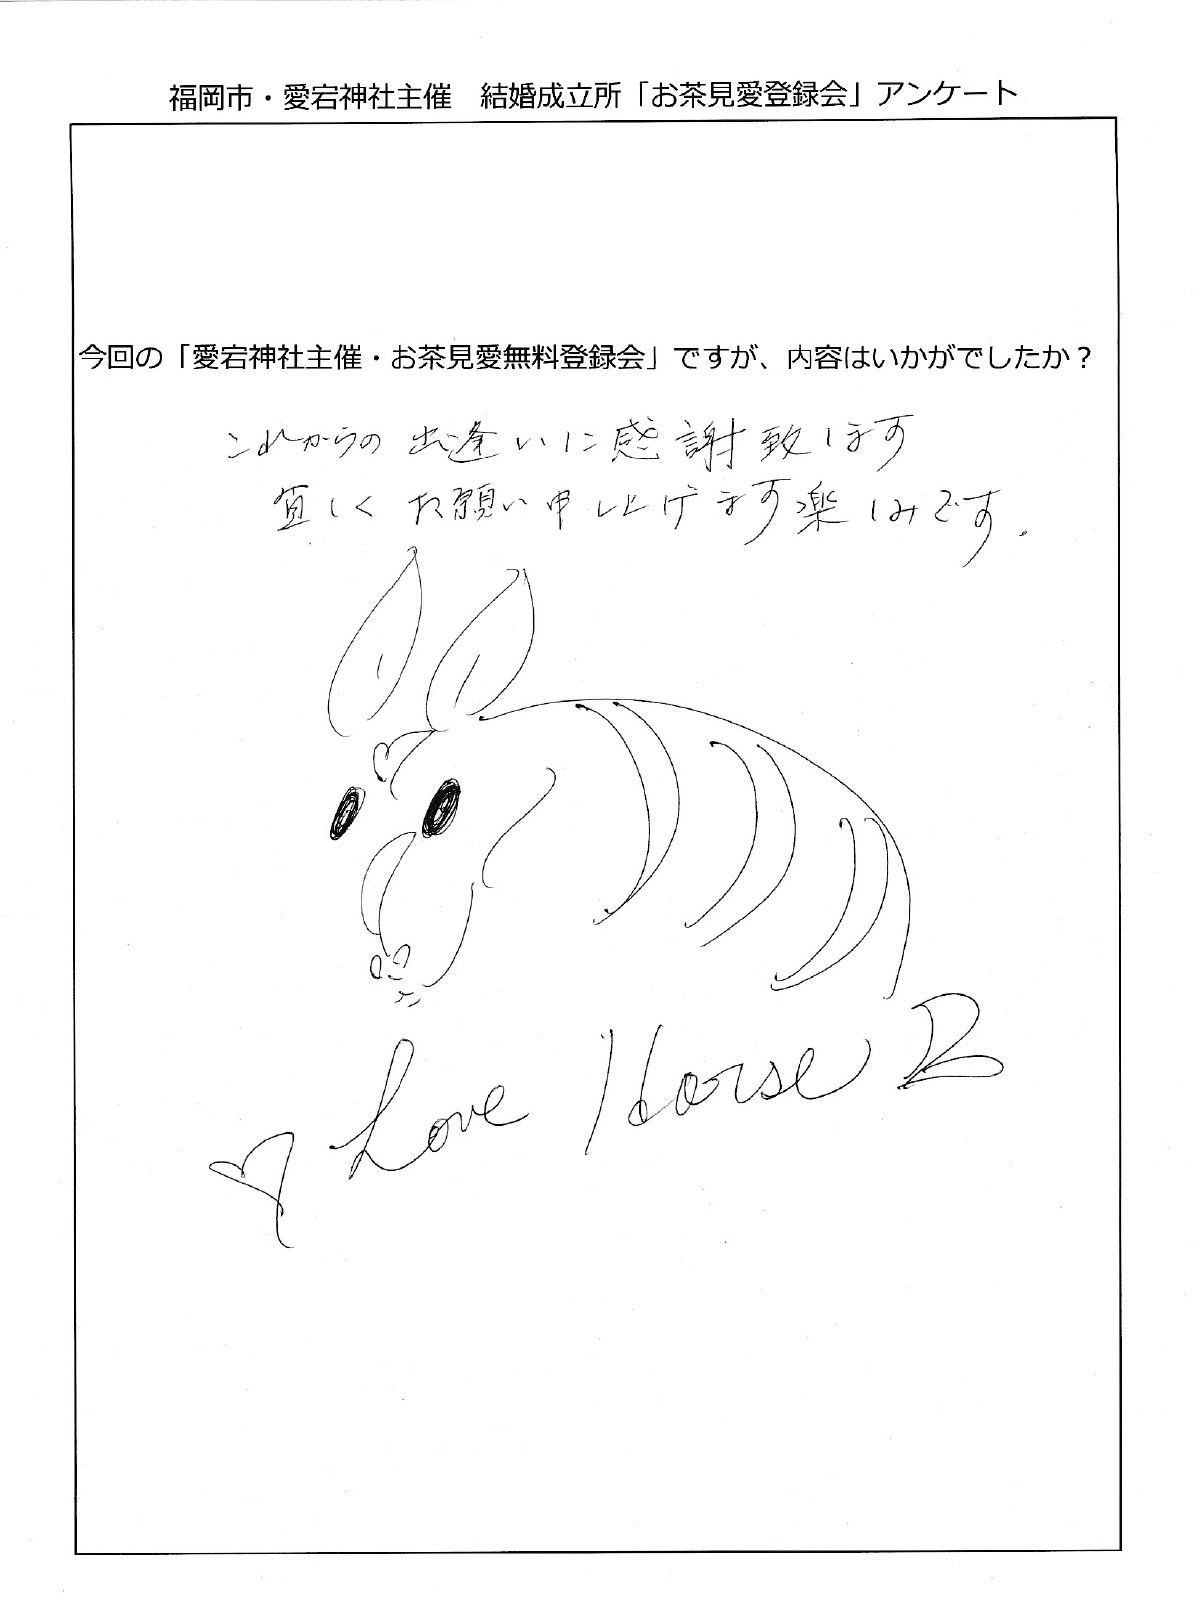 福岡市・愛宕神社主催　結婚成立所「お茶見愛登録会」アンケート
今回の「愛宕神社主催・お茶見愛無料登録会」ですが、内容はいかがでしたか？
これからの出逢いに感謝致します
宜しくお願い申し上げます楽しみです.
Love Horse